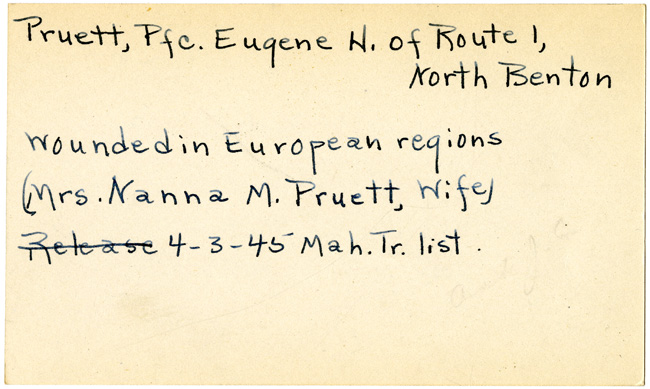 Pruett, Pfc. Eugene H. of Route 1,
North Benton
wounded in European regions
(Mrs. Nanna M. Pruett, Wife)
Release 4-3-45 Mah. Tr. list.